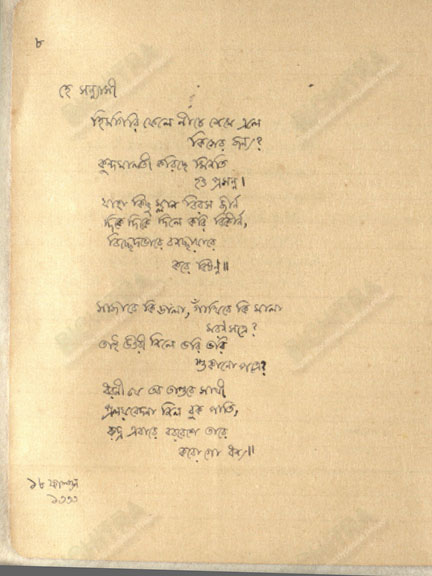 ৮
হে সন্ন্যাসী
হিমগিরি ফেলে নীচে নেমে এলে
কিসের জন্য?
কুন্দমালতী করিছে মিনতি
হও প্রসন্ন।
যাহা কিছু ম্লান বিরস জীর্ণ
দিকে দিকে দিলে করি বিকীর্ণ,
বিচ্ছেদভারে বনচ্ছায়ারে
করে বিষণ্ন॥
সাজাবে কি ডালা, গাঁথিবে কি মালা
মরণসত্রে?
তাই উত্তরী নিলে ভরি ভরি
শুকানো পত্রে?
ধরণী যে তব তাণ্ডবে সাথী
প্রলয়বেদনা নিল বুক পাতি,
রুদ্র এবারে বরবেশে তারে
করো গো ধন্য॥
১৮ ফাল্গুন
১৩৩৩